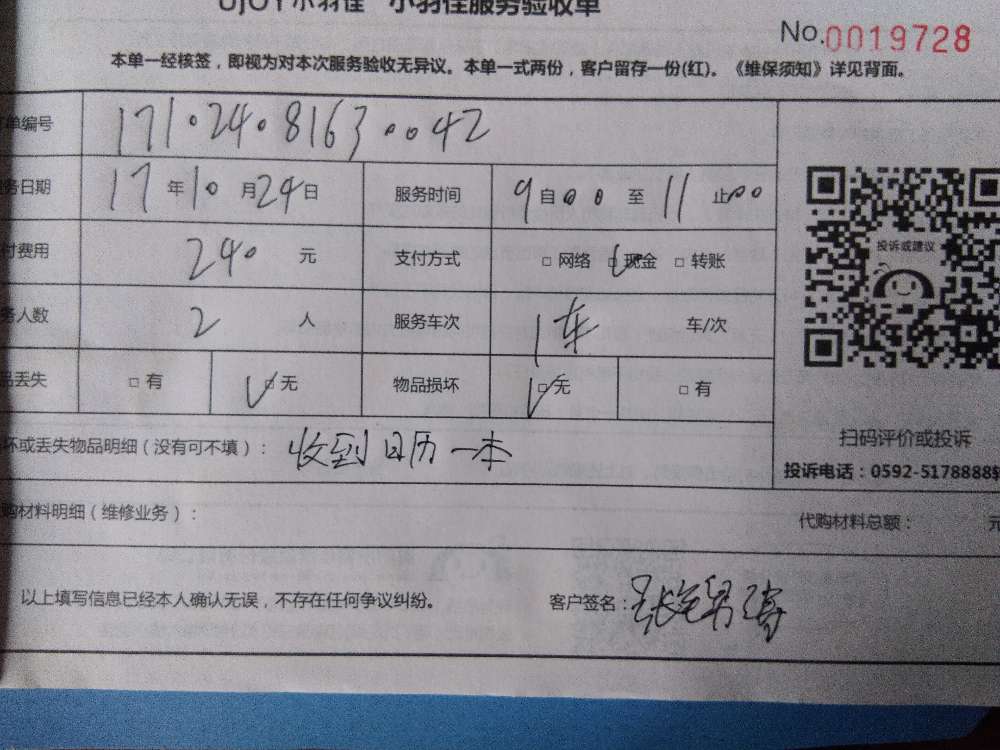 UJOY小羽佳 小羽佳服务验收单
No.0019728
本单一经核签，即视为对本次服务验收无异议。本单一式两份，客户留存一份(红)。《维保须知》详见背面。
单编号 171024081630042
务日期 17年10月24日 服务时间 9自00至11止00
付费用 240 元 支付方式 □ 网络 □ 现金 □ 转账
务人数 2 人 服务车次 1车 车/次
品丢失 □ 有 □ 无 物品损坏 □ 无 □ 有
投诉或建议
扫码评价或投诉
投诉电话：0592-5178888
坏或丢失物品明细（没有可不填）： 收到日历一本
购材料明细（维修业务）： 代购材料总额： 元
以上填写信息已经本人确认无误，不存在任何争议纠纷。 客户签名：